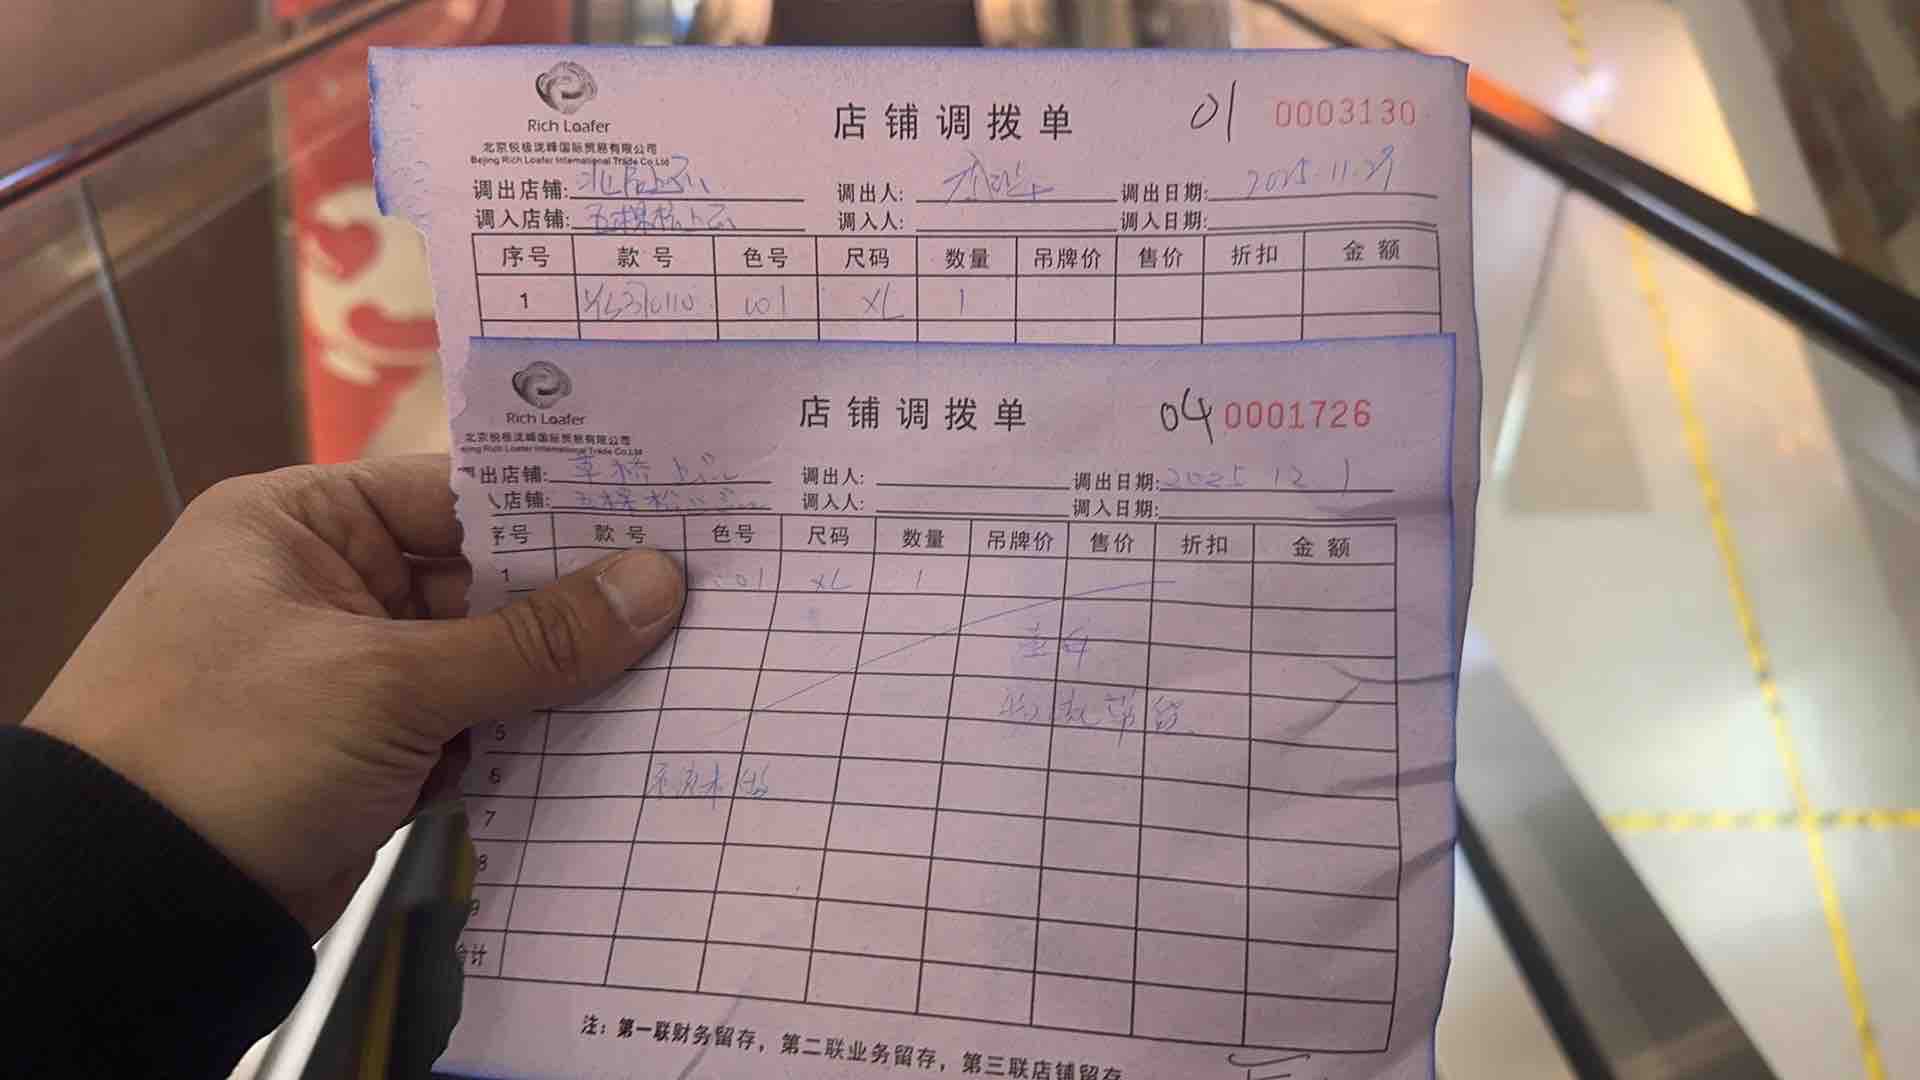 Rich Loafer
北京锐极泷峰国际贸易有限公司
Bejing Rich Loafer International Trade Co.Ltd
店铺调拨单 01 0003130
调出店铺: 调出人: 调出日期: 2025.11.29
调入店铺: 五棵松上云 调入人: 调入日期:
序号 款号 色号 尺码 数量 吊牌价 售价 折扣 金额
1 001 XL 1
Rich Loafer
北京锐极泷峰国际贸易有限公司
jing Rich Loafer International Trade Co.Ltd
店铺调拨单 04 0001726
出店铺: 草桥上云 调出人: 调出日期: 2025 12 1
入店铺: 五棵松 调入人: 调入日期:
序号 款号 色号 尺码 数量 吊牌价 售价 折扣 金额
1 001 XL 1
壹件
5
6
7
8
9
合计
注：第一联财务留存，第二联业务留存，第三联店铺留存